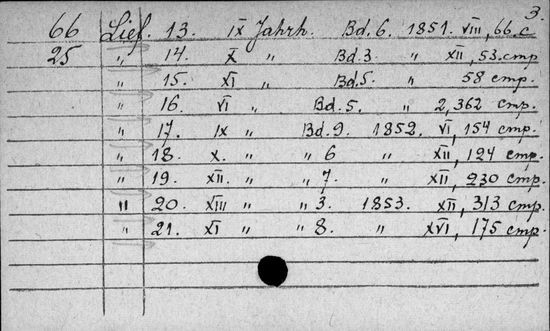 3.
66 Lief. 13. IX Jahrh. Bd. 6. 1851. VIII, 66. c
25 „ 14. X „ Bd. 3. „ XII, 53. стр
„ 15. XI „ Bd. 5. „ 58 стр.
„ 16. VI „ Bd. 5. „ 2, 362 стр.
„ 17. IX „ Bd. 9. 1852. VI, 154 стр.
„ 18. X. „ „ 6 „ XII, 124 стр.
„ 19. XII. „ „ 7. „ XII, 230 стр.
„ 20. XIII „ „ 3. 1853. XII, 313 стр.
„ 21. XI „ „ 8. „ XVI, 175 стр.